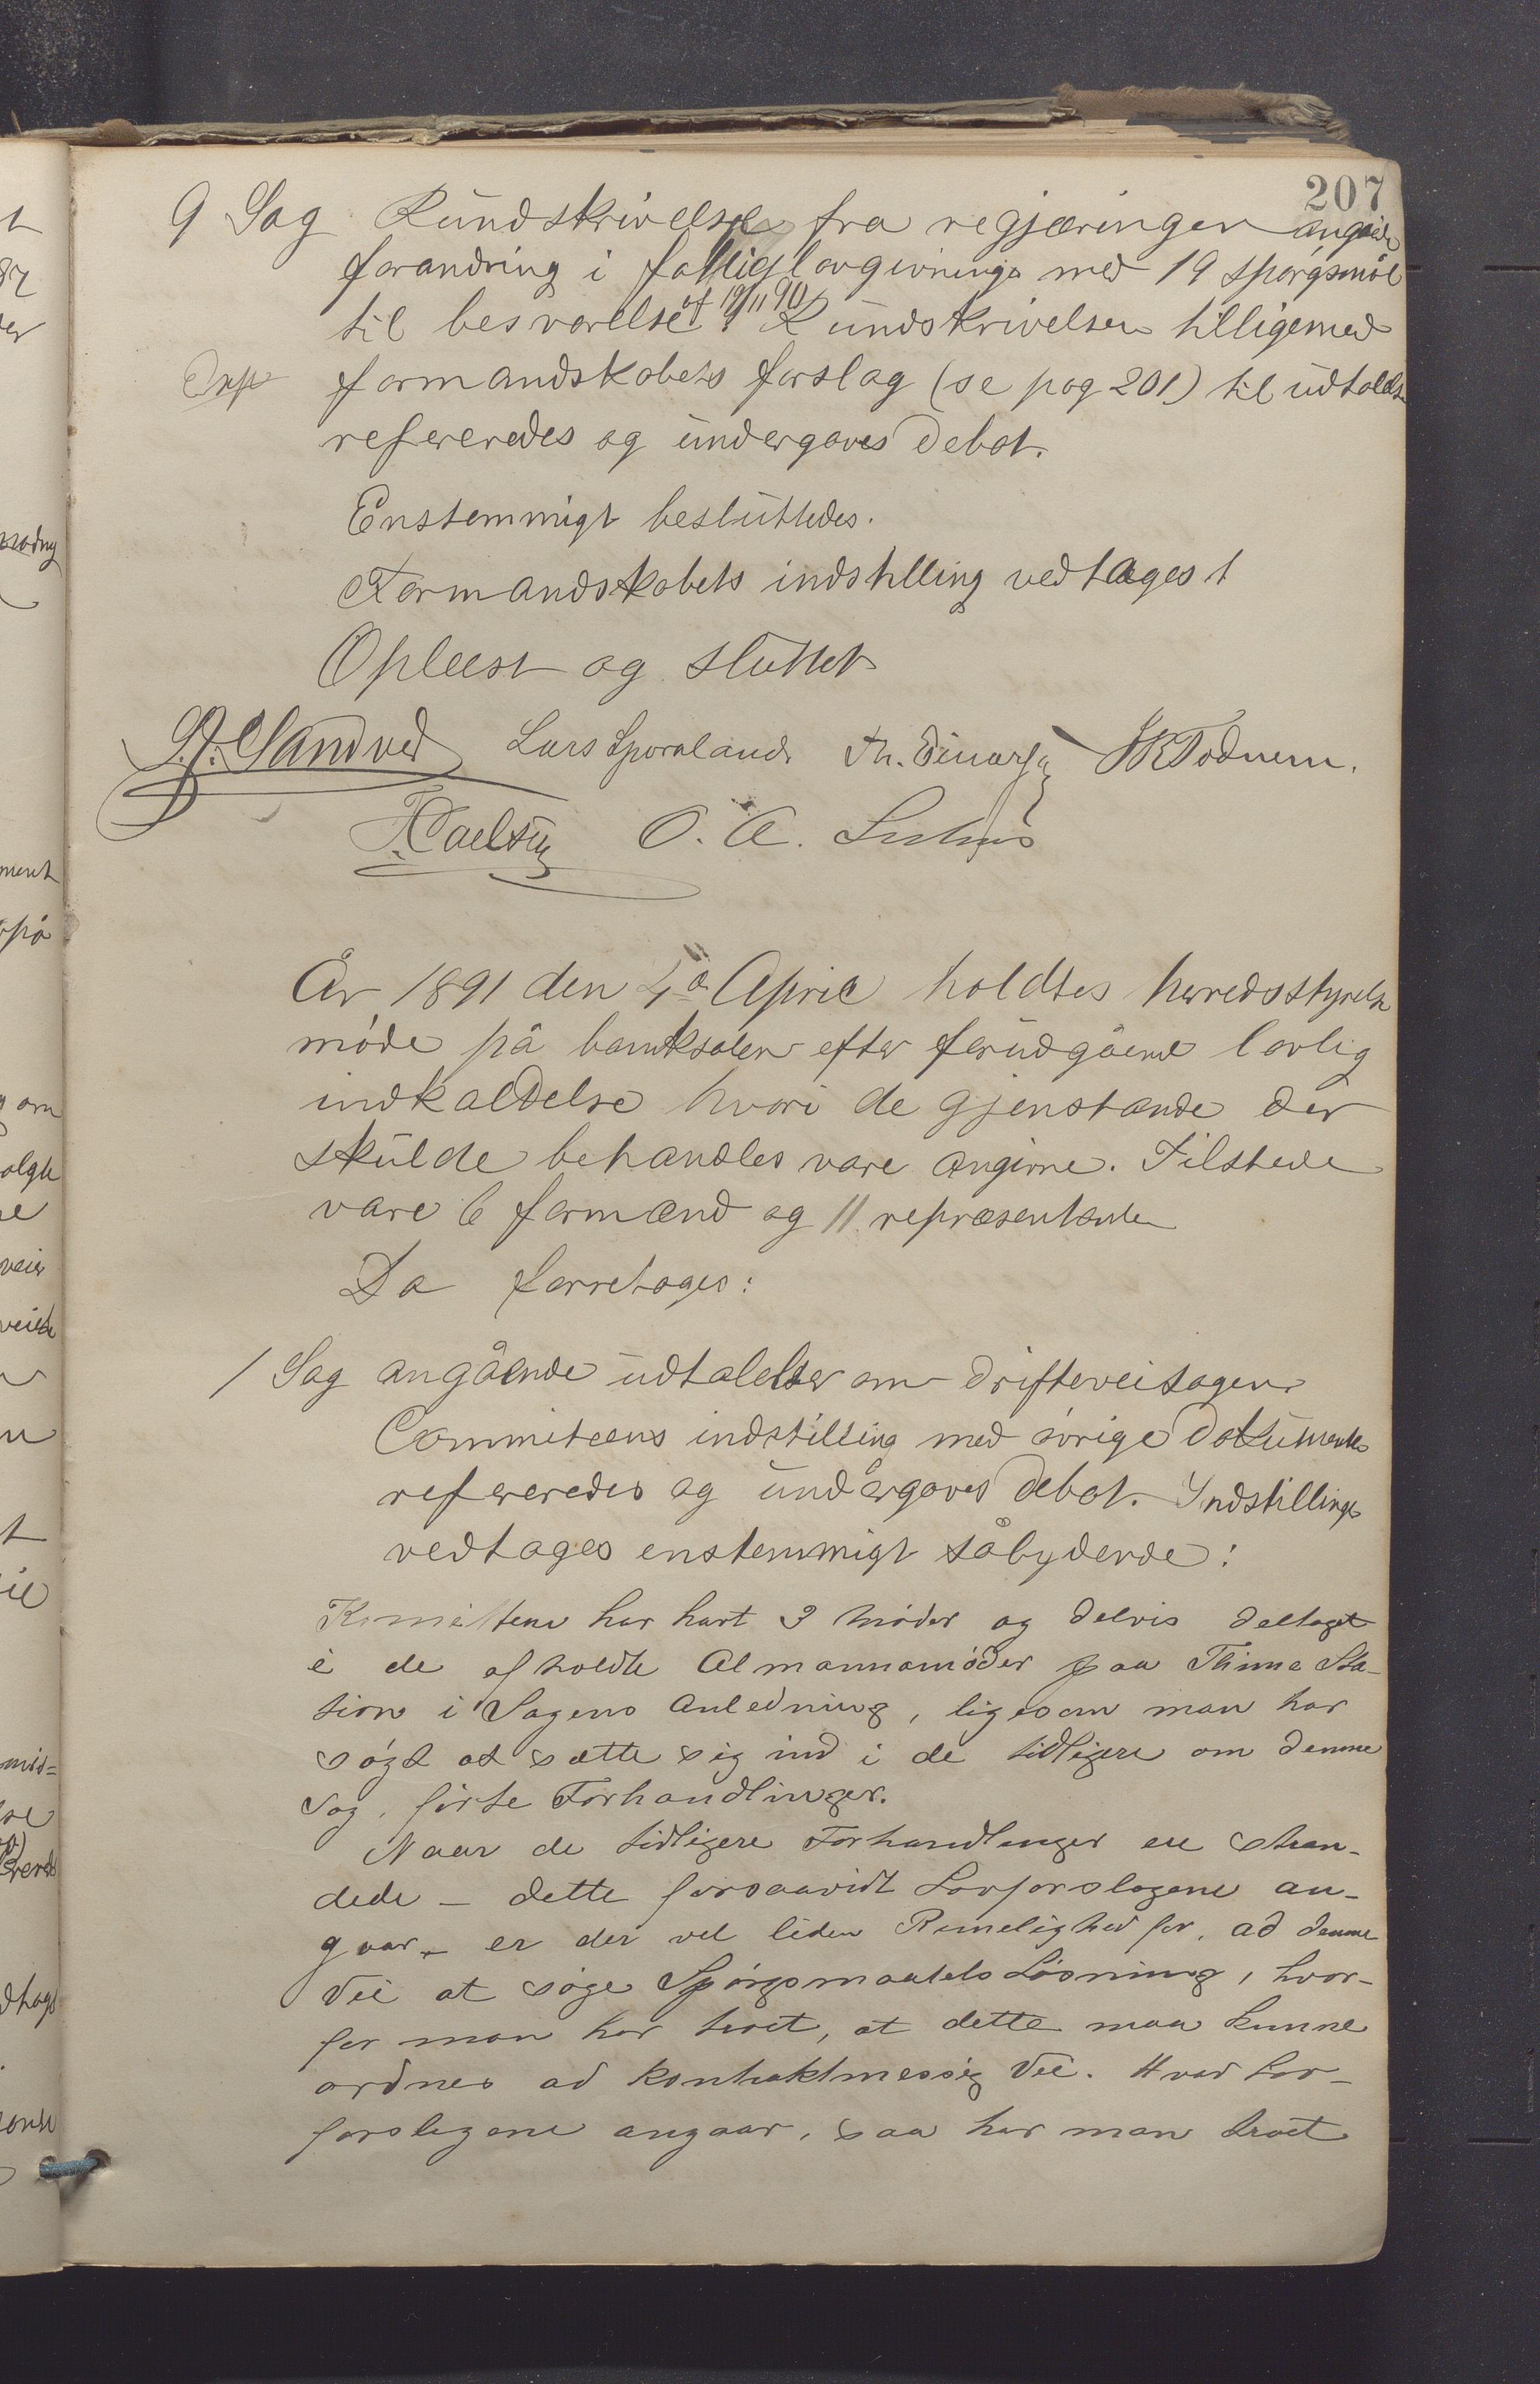 207
9 Sag Rundskrivelse fra regjæringen angåede
forandring i fattiglovgivninge med 19 spørgsmål
til besvarelse af 19/11 90 Rundskrivelsen tilligemed
Exp formandskabets forslag (se pag 201) til udtalelse
refereredes og undergaves debat.
Enstemmigt besluttedes.
Formandskabets indstilling vedtages
Oplæst og sluttet
Sandved Lars Sporaland Th. JB Todnem.
O. A.
År 1891 den 4de April holdtes herredsstyrelse
møde på banksalen efter forudgående lovlig
indkaldelse hvori de gjenstande der
skulde behandles vare angivne. Tilstede
vare 6 formænd og 11 repræsentanter
Da forretages:
1 Sag angående udtalelse om drifteveisagen.
Commiteens indstilling med øvrige dokumenter
refereredes og undergaves debat. Indstillingen
vedtages enstemmigt såbydende:
Komitteen har havt 3 Møder og delvis deltaget
i de afholdte Almannamøder paa Thime Sta-
tion i Sagens Anledning, ligesom man har
søgt at sætte sig ind i de tidligere om denne
Sag førte Forhandlinger.
Naar de tidligere Forhandlinger ere stran-
dede – dette forsaavidt Lovforslagene an-
gaar – er der vel liden Rimelighed for, ad denne
Vei at søge Spørgsmaalets Løsning, hvor-
for man har troet, at dette maa kunne
ordnes ad kontraktmessig Vei. Hvad Lov-
forslagene angaar, saa har man troet